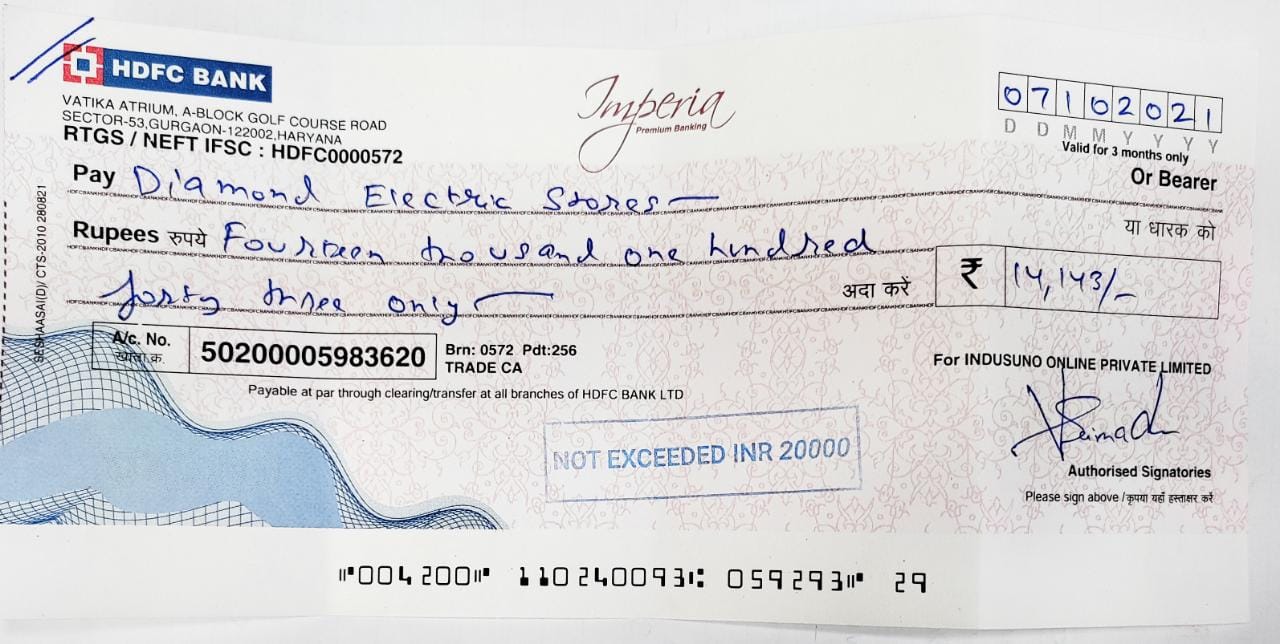 HDFC BANK
VATIKA ATRIUM, A-BLOCK GOLF COURSE ROAD
SECTOR-53,GURGAON-122002,HARYANA
RTGS / NEFT IFSC : HDFC0000572
Imperia
Premium Banking
07102021
D D M M Y Y Y Y
Valid for 3 months only
Pay Diamond Electric Stores
Or Bearer
या धारक को
Rupees रुपये Fourteen thousand one hundred
forty three only
अदा करें
₹ 14,143/-
A/c. No.
खाता क्र.
50200005983620
Brn: 0572 Pdt:256
TRADE CA
Payable at par through clearing/transfer at all branches of HDFC BANK LTD
For INDUSUNO ONLINE PRIVATE LIMITED
NOT EXCEEDED INR 20000
Authorised Signatories
Please sign above / कृपया यहाँ हस्ताक्षर करें
SESHAASAI(D)/ CTS-2010 280821
⑈004200⑈ 110240093⑆ 059293⑈ 29